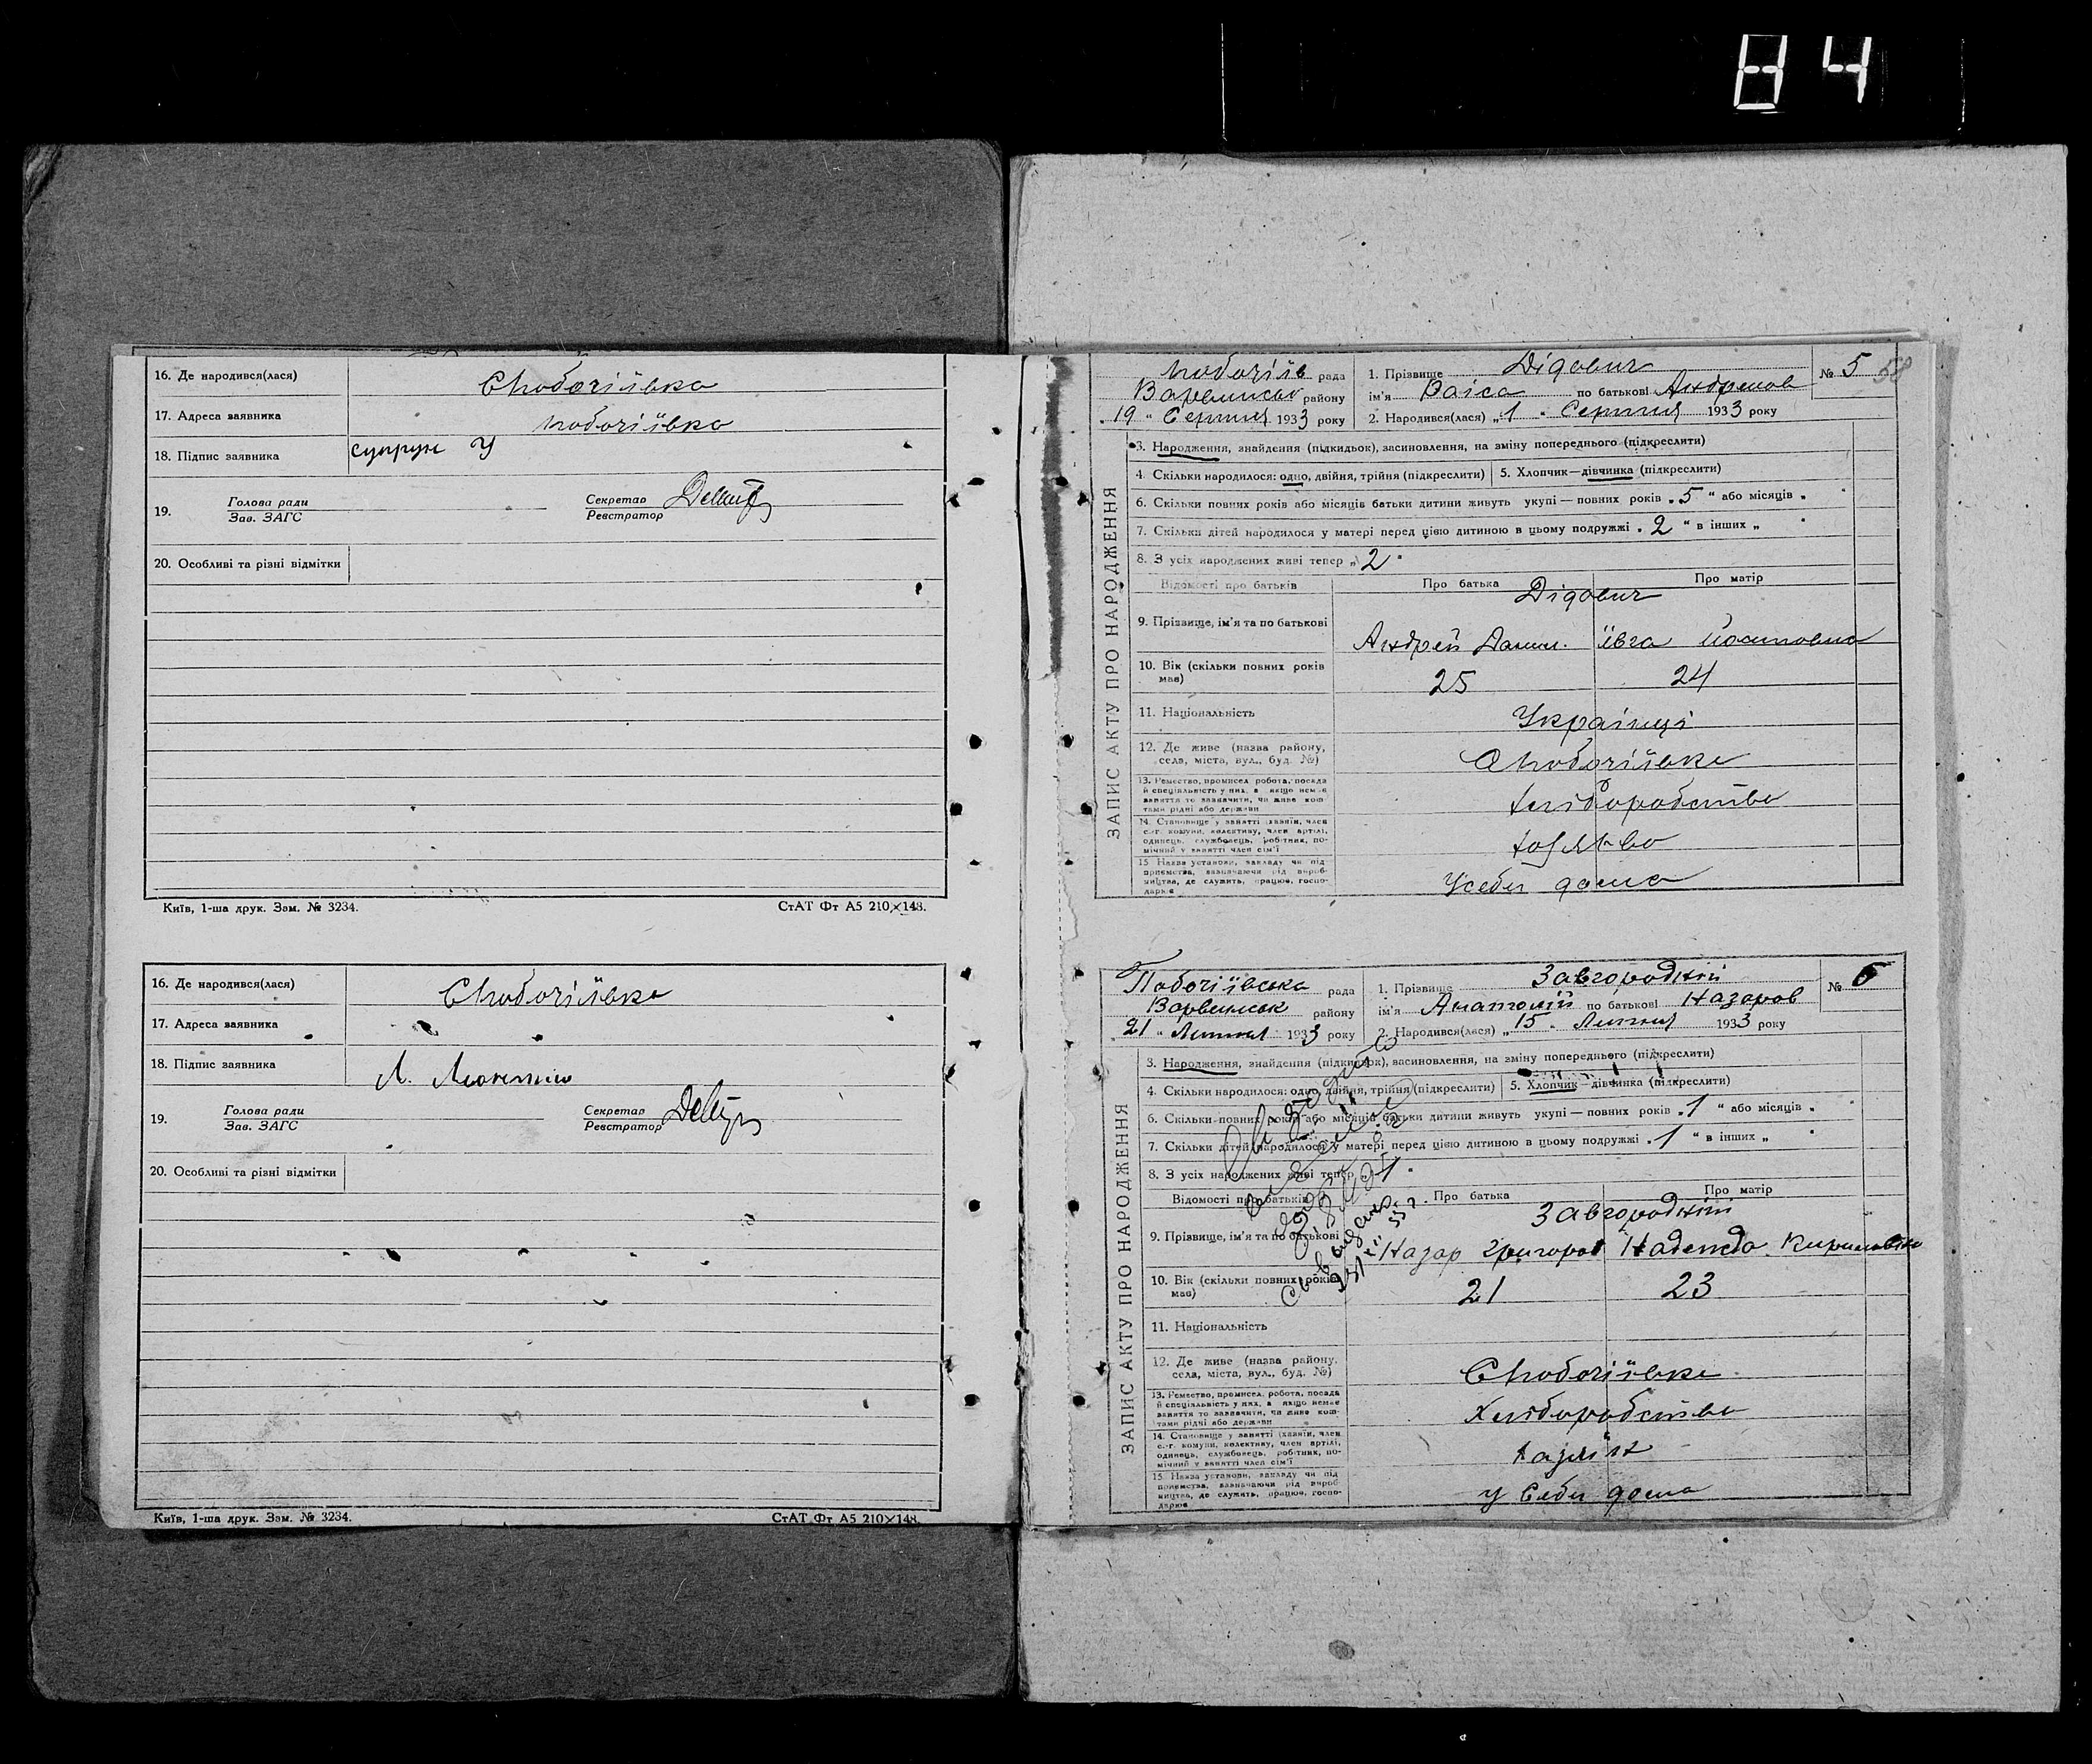 84
16. Де народився(лася) С Побочіївка
17. Адреса заявника Побочіївка
18. Підпис заявника Супрун У
19. Голова ради Секретар
Зав. ЗАГС Реєстратор
20. Особливі та різні відмітки
Київ, 1-ша друк. Зам. № 3234. СтАТ Фт А5 210×148.
16. Де народився(лася) С Побочіївка
17. Адреса заявника
18. Підпис заявника Л.
19. Голова ради Секретар
Зав. ЗАГС Реєстратор
20. Особливі та різні відмітки
Київ, 1-ша друк. Зам. № 3234. СтАТ Фт А5 210×148.
ЗАПИС АКТУ ПРО НАРОДЖЕННЯ
Побочіїв рада
району
„ 19 " Серпня 1933 року
1. Прізвище Дідович
ім'я Раіса по батькові Андреєов
2. Народився(лася) „ 1 " Серпня 1933 року
№ 5 58
3. Народження, знайдення (підкидьок), засиновлення, на зміну попереднього (підкреслити)
4. Скільки народилося: одно, двійня, трійня (підкреслити) 5. Хлопчик—дівчинка (підкреслити)
6. Скільки повних років або місяців батьки дитини живуть укупі — повних років „ 5 " або місяців „ "
7. Скільки дітей народилося у матері перед цією дитиною в цьому подружжі „ 2 " в інших „ "
8. З усіх народжених живі тепер „ 2 "
Відомості про батьків Про батька Про матір
Дідович
9. Прізвище, ім'я та по батькові Андрей Данил. Ївга Йосиповна
10. Вік (скільки повних років має) 25 24
11. Національність Українці
12. Де живе (назва району, села, міста, вул., буд. №) С Побочіївка
13. Ремество, промисел, робота, посада й спеціальність у них, а якщо немає заняття то зазначити, чи живе коштами рідні або держави Хліборобство
14. Становище у занятті (хазяїн, член с.-г. комуни, колективу, член артілі, одинець, службовець, робітник, помічний у занятті член сім'ї
15. Назва установи, закладу чи підприємства, зазначаючи рід виробництва, де служить, працює, господарює Усеби дома
ЗАПИС АКТУ ПРО НАРОДЖЕННЯ
Побочіївська рада
Варвинськ району
„ 21 " Липня 1933 року
1. Прізвище Завгородній
ім'я Анатолій по батькові Назаров
2. Народився(лася) „ 15 " Липня 1933 року
№ 6
3. Народження, знайдення (підкидьок), засиновлення, на зміну попереднього (підкреслити)
4. Скільки народилося: одно, двійня, трійня (підкреслити) 5. Хлопчик—дівчинка (підкреслити)
6. Скільки повних років або місяців батьки дитини живуть укупі — повних років „ 1 " або місяців „ "
7. Скільки дітей народилося у матері перед цією дитиною в цьому подружжі „ 1 " в інших „ "
8. З усіх народжених живі тепер „ 1 "
Відомості про батьків Про батька Про матір
Завгородній
9. Прізвище, ім'я та по батькові Назар Григоров Надежда Кириловна
10. Вік (скільки повних років має) 21 23
11. Національність
12. Де живе (назва району, села, міста, вул., буд. №) С Побочіївка
13. Ремество, промисел, робота, посада й спеціальність у них, а якщо немає заняття то зазначити, чи живе коштами рідні або держави Хліборобство
14. Становище у занятті (хазяїн, член с.-г. комуни, колективу, член артілі, одинець, службовець, робітник, помічний у занятті член сім'ї
15. Назва установи, закладу чи підприємства, зазначаючи рід виробництва, де служить, працює, господарює у Себи дома